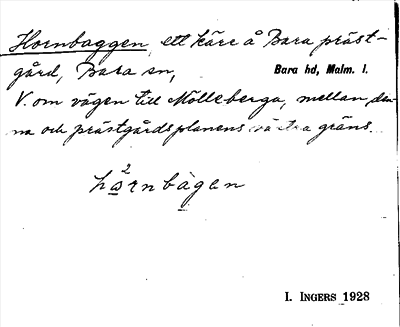 Hornbaggen, ett kärr å Bara präst-
gård, Bara sn, Bara hd, Malm. l.
V. om vägen till Mölleberga, mellan den-
na och prästgårdsplanens västra gräns.
hå²rnbagan
I. INGERS 1928